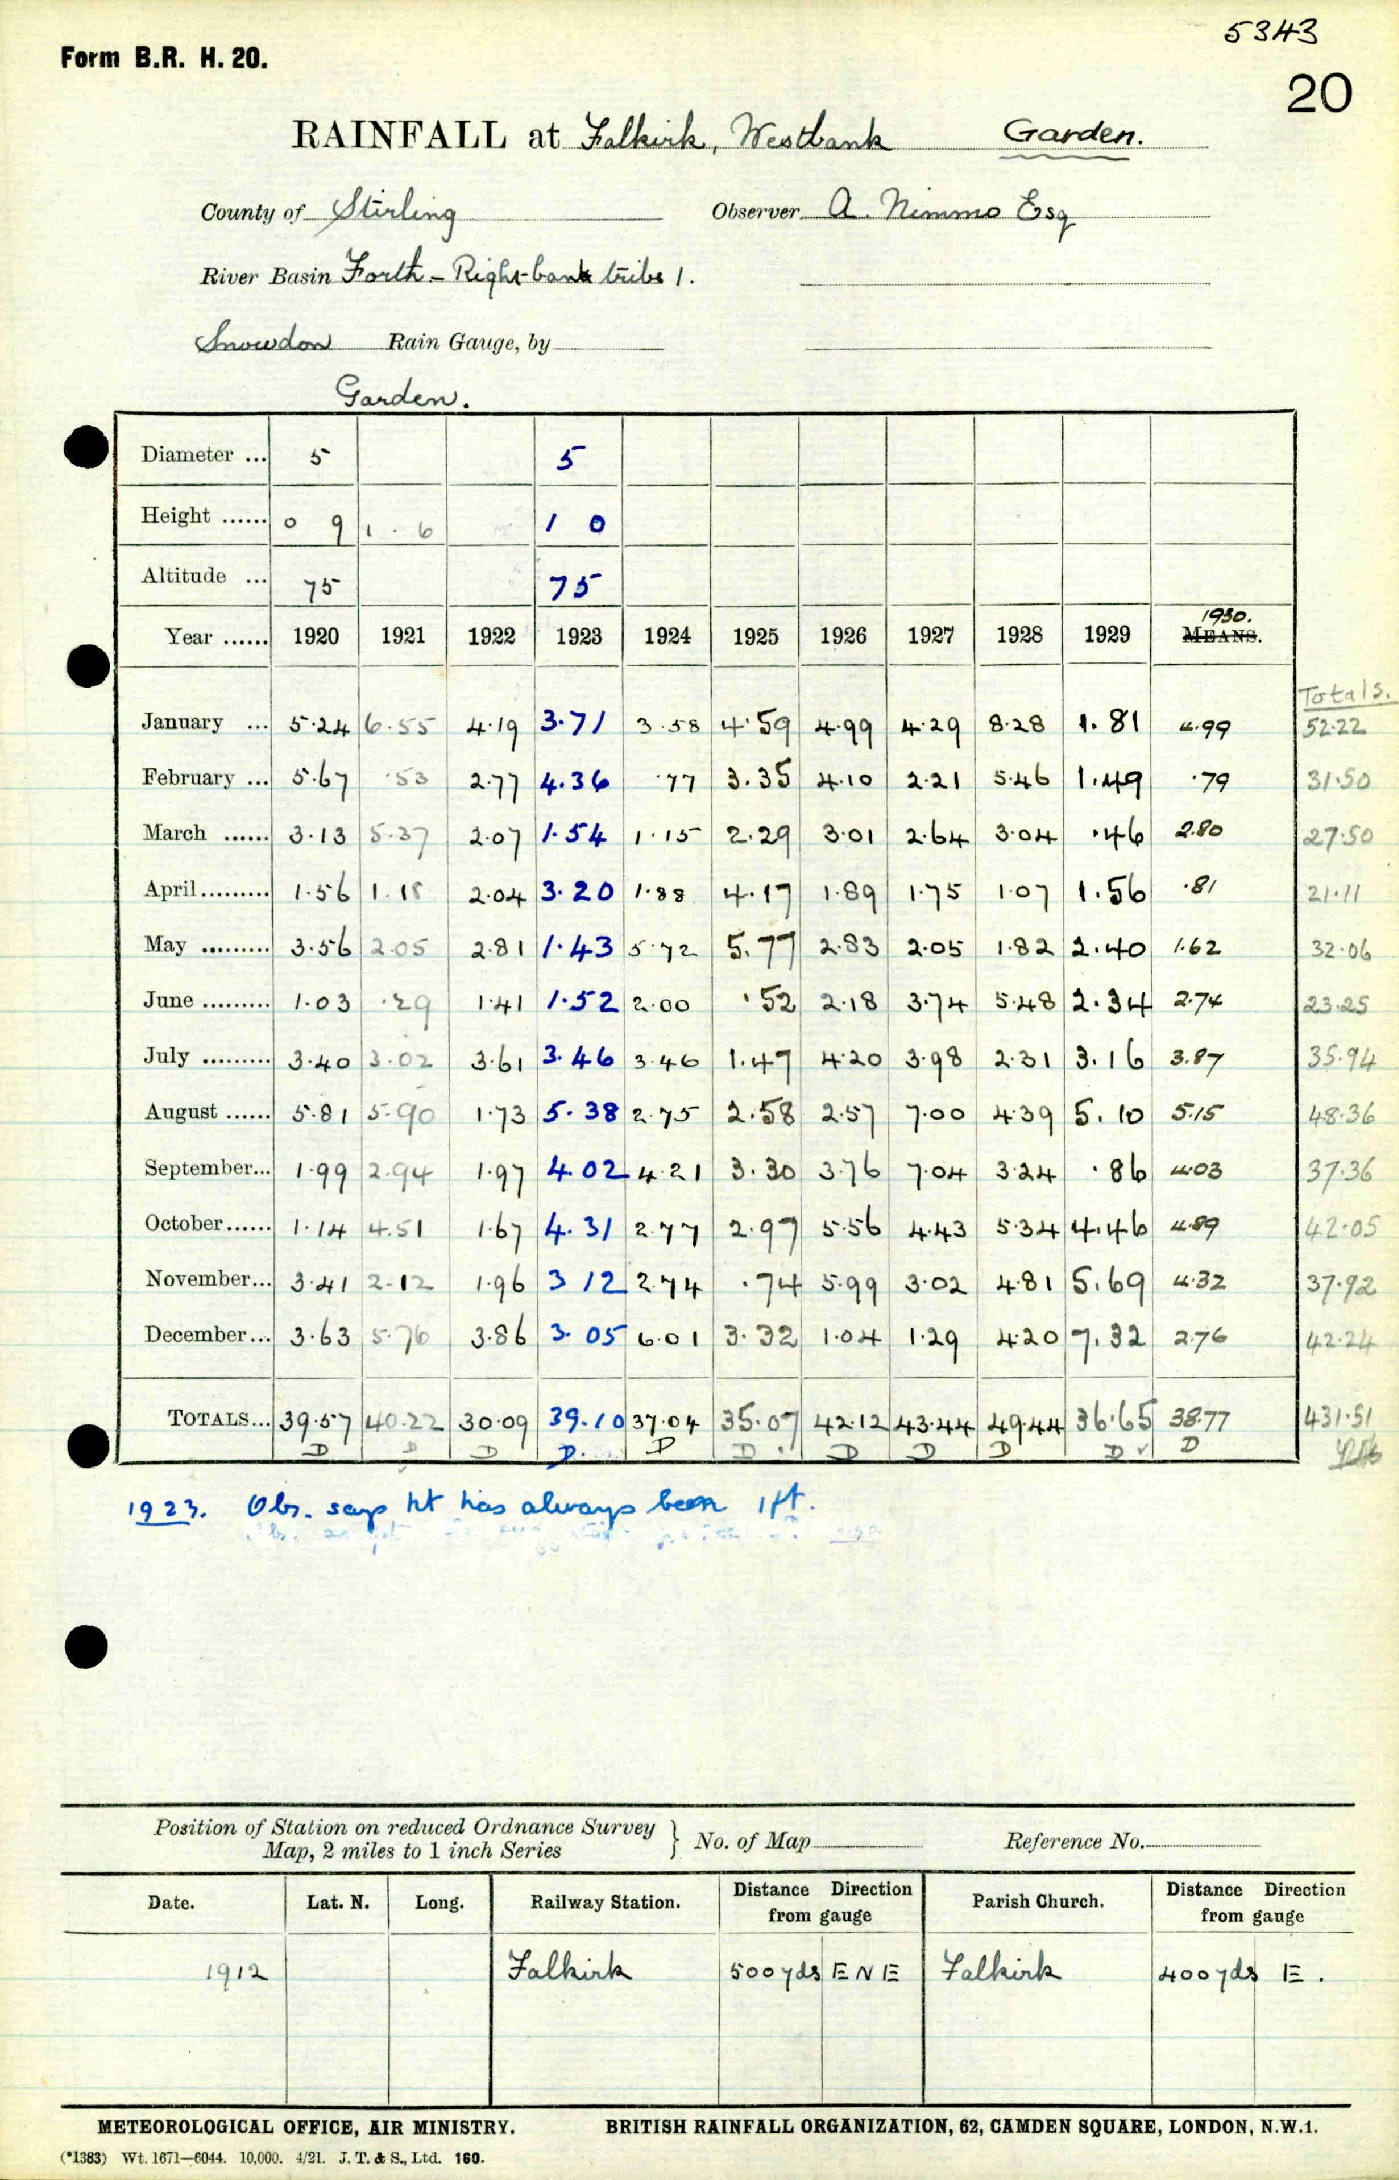 5343
Form B.R. H. 20.
20
RAINFALL at Falkirk, Westbank Garden.
County of Stirling Observer A. Nimmo Esq
River Basin Forth - Right-bank tribs 1.
Snowdon Rain Gauge, by
Garden.
Diameter ... 5 5
Height ...... 0 9 1 . 6 1 0
Altitude ... 75 75
1930.
Year ...... 1920 1921 1922 1923 1924 1925 1926 1927 1928 1929 MEANS.
Totals.
January ... 5.24 6.55 4.19 3.71 3.58 4.59 4.99 4.29 8.28 1.81 4.99 52.22
February ... 5.67 .53 2.77 4.36 .77 3.35 4.10 2.21 5.46 1.49 .79 31.50
March ...... 3.13 5.37 2.07 1.54 1.15 2.29 3.01 2.64 3.04 .46 2.80 27.50
April......... 1.56 1.18 2.04 3.20 1.88 4.17 1.89 1.75 1.07 1.56 .81 21.11
May ......... 3.56 2.05 2.81 1.43 5.72 5.77 2.83 2.05 1.82 2.40 1.62 32.06
June ......... 1.03 .29 1.41 1.52 2.00 .52 2.18 3.74 5.48 2.34 2.74 23.25
July ......... 3.40 3.02 3.61 3.46 3.46 1.47 4.20 3.98 2.31 3.16 3.87 35.94
August ...... 5.81 5.90 1.73 5.38 2.75 2.58 2.57 7.00 4.39 5.10 5.15 48.36
September... 1.99 2.94 1.97 4.02 4.21 3.30 3.76 7.04 3.24 .86 4.03 37.36
October...... 1.14 4.51 1.67 4.31 2.77 2.97 5.56 4.43 5.34 4.46 4.89 42.05
November... 3.41 2.12 1.96 3 12 2.74 .74 5.99 3.02 4.81 5.69 4.32 37.92
December... 3.63 5.76 3.86 3.05 6.01 3.32 1.04 1.29 4.20 7.32 2.76 42.24
TOTALS... 39.57 40.22 30.09 39.10 37.04 35.07 42.12 43.44 49.44 36.65 38.77 431.51
D D D D. D D D D D D D
1923. Obs. says ht has always been 1ft.
Position of Station on reduced Ordnance Survey
Map, 2 miles to 1 inch Series } No. of Map Reference No.
Date. Lat. N. Long. Railway Station. Distance Direction from gauge Parish Church. Distance Direction from gauge
1912 Falkirk 500yds ENE Falkirk 400yds E.
METEOROLOGICAL OFFICE, AIR MINISTRY. BRITISH RAINFALL ORGANIZATION, 62, CAMDEN SQUARE, LONDON, N.W.1.
(*1383) Wt. 1671—6044. 10,000. 4/21. J. T. & S., Ltd. 160.